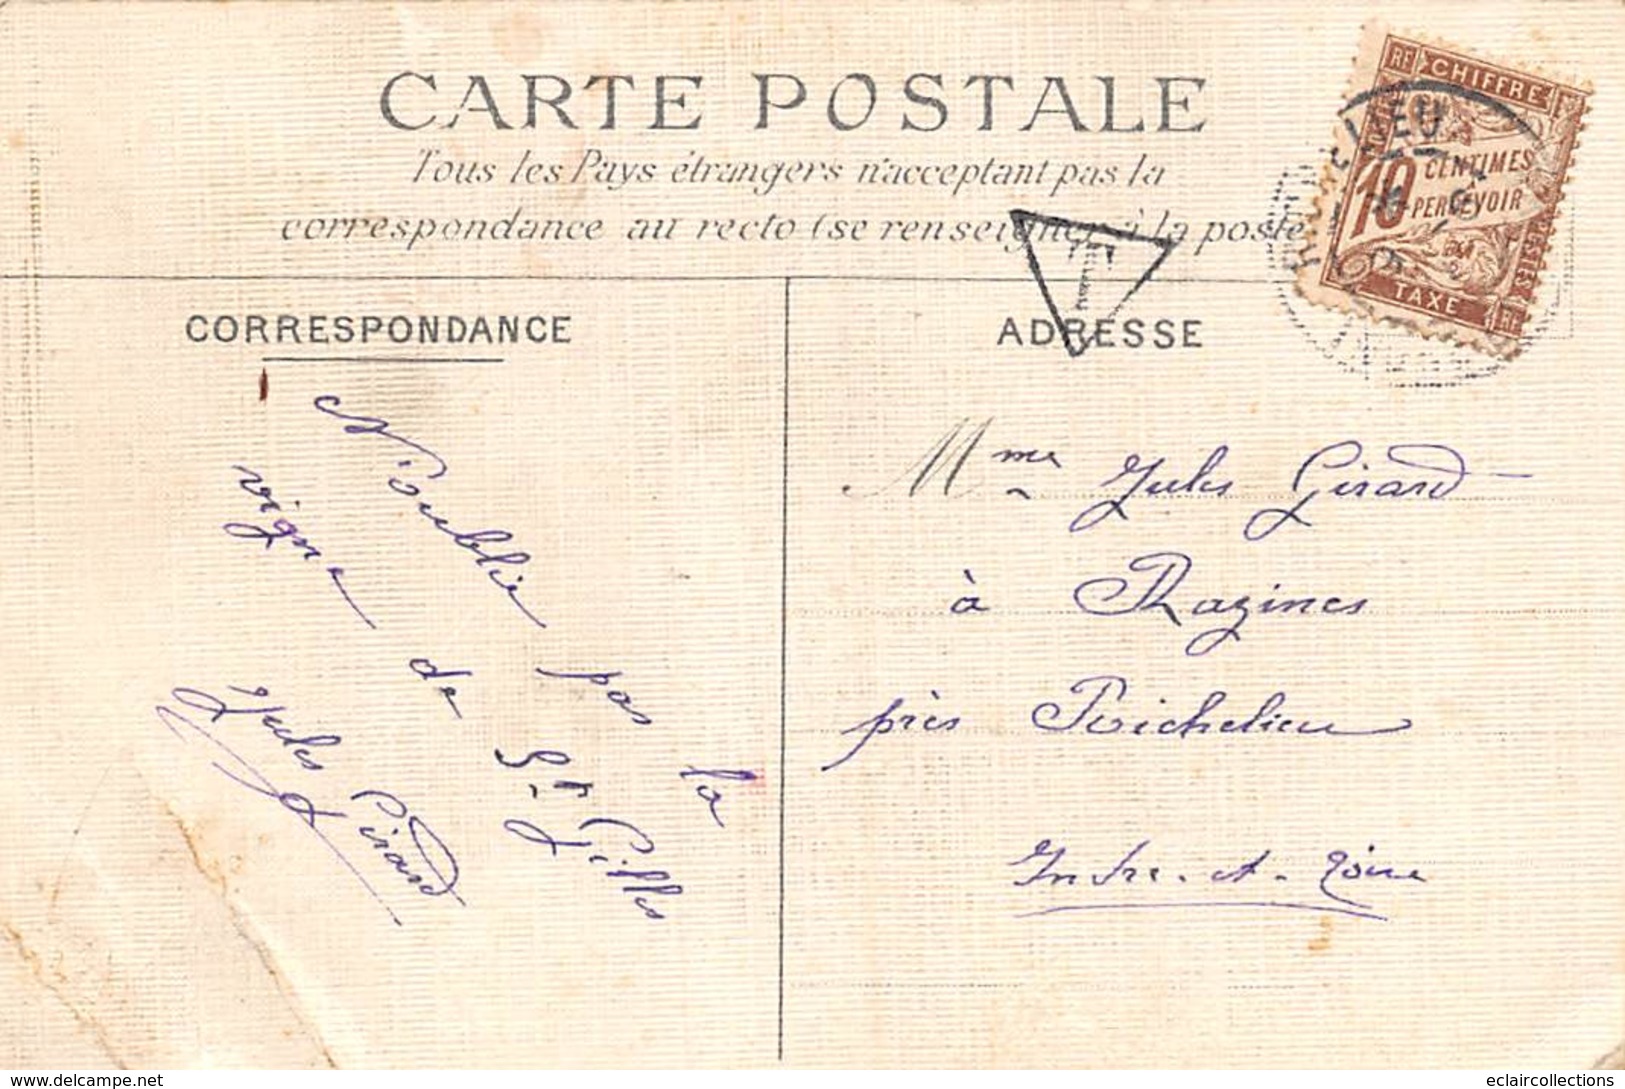 CARTE POSTALE
Tous les Pays étrangers n'acceptant pas la
correspondance au recto (se renseigner à la poste
RF CHIFFRE
10 CENTIMES
À PERCEVOIR
TAXE RF
T
CORRESPONDANCE
ADRESSE
N'oublie pas la
vigne de St. Gilles
Jules Girard
Mme Jules Girard
à Razines
près Richelieu
Indre-et-Loire
www.delcampe.net
eclaircollections